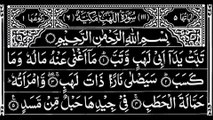 سُورَةُ اللَّهَبِ مَكِّيَّةٌ
بِسْمِ اللَّهِ الرَّحْمَٰنِ الرَّحِيمِ
تَبَّتْ يَدَا أَبِي لَهَبٍ وَتَبَّ ۝ مَا أَغْنَىٰ عَنْهُ مَالُهُ وَمَا
كَسَبَ ۝ سَيَصْلَىٰ نَارًا ذَاتَ لَهَبٍ ۝ وَامْرَأَتُهُ
حَمَّالَةَ الْحَطَبِ ۝ فِي جِيدِهَا حَبْلٌ مِنْ مَسَدٍ ۝